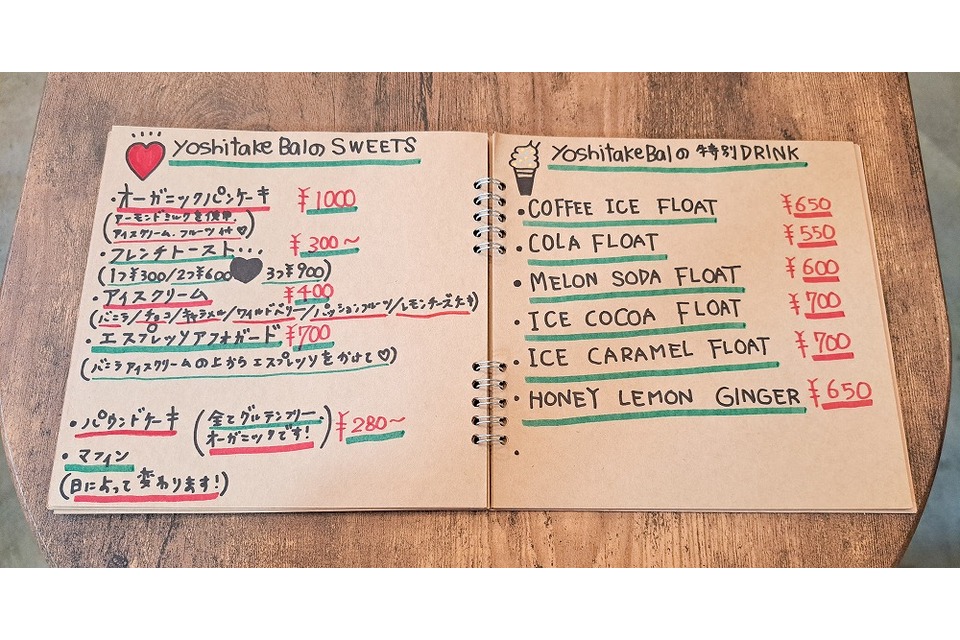 Yoshitake BalのSWEETS
・オーガニックパンケーキ ¥1000
(アーモンドミルクを使用。
アイスクリーム、フルーツ付♡)
・フレンチトースト・・・ ¥300〜
(1つ¥300/2つ¥600 3つ¥900)
・アイスクリーム ¥400
(バニラ/チョコ/キャラメル/ワイルドベリー/パッションフルーツ/レモンチーズケーキ)
・エスプレッソアフォガード ¥700
(バニラアイスクリームの上からエスプレッソをかけて♡)
・パウンドケーキ (全てグルテンフリー、オーガニックです!) ¥280〜
・マフィン
(日によって変わります!)
YoshitakeBalの特別DRINK
・COFFEE ICE FLOAT ¥650
・COLA FLOAT ¥550
・MELON SODA FLOAT ¥600
・ICE COCOA FLOAT ¥700
・ICE CARAMEL FLOAT ¥700
・HONEY LEMON GINGER ¥650
・